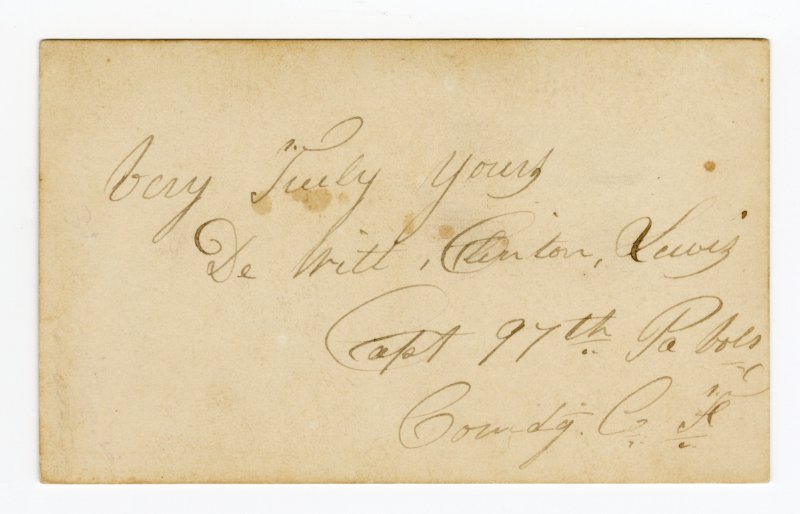 Very Truly Yours
De Witt, Clinton, Lewis
Capt 97th Pa Vols
Comdg. Co F